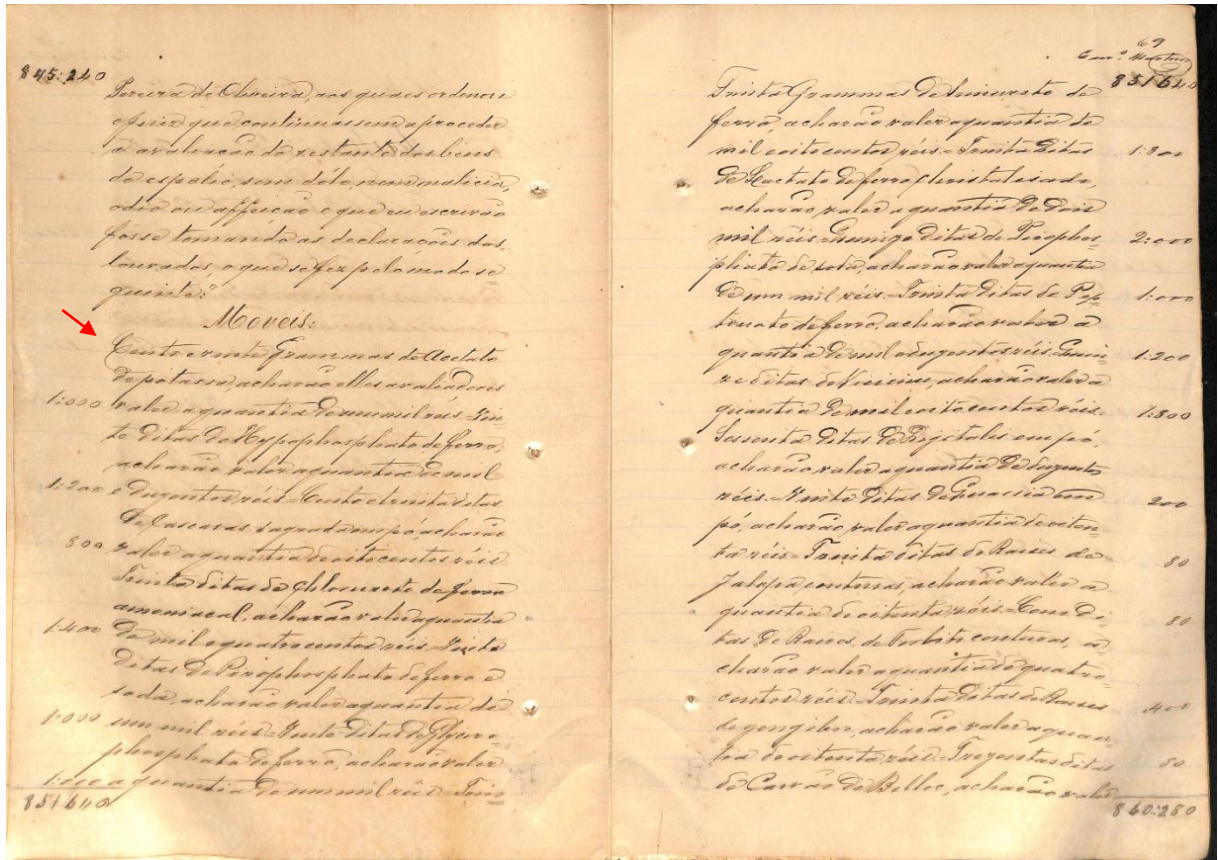 845:240
Pereira de Oliveira, aos quaes ordenou
o Juiz que continuassem a proceder
a avaliação do restante dos bens
do espolio, sem dólo nem malicia,
odio ou affeição e que eu escrivão
fosse tomando as declarações dos
louvados, o que se fez pelo modo se
guinte:
Moveis:
Cento e vinte grammas de Acetato
de potassa, acharão elles avaliadores
1:000 valer a quantia de um mil réis. Vin=
te ditas de Hypophosphato de ferro,
acharão valer a quantia de mil
1:200 e duzentos réis. Cento e trinta ditas
de Cascaras sagrada em pó, acharão
800 valer a quantia de oitocentos réis
Trinta ditas de Chlorureto de ferro
amoniacal, acharão valer a quantia
1:400 de mil e quatrocentos réis. Vinte
ditas de Pirophosphato de ferro e
soda, acharão valer a quantia de
1:000 um mil réis. Vinte ditas de Glycero=
phosphato de ferro, acharão valer
1:000 a quantia de um mil réis. Trin
851640
69
851640
Trinta Grammas de de
ferro, acharão valer a quantia de
mil e oitocentos réis. Trinta ditas 1:800
de Lactato de ferro christalisado,
acharão valer a quantia de dois
mil réis. Quinze ditas de Pirophos= 2:000
phato de soda, acharão valer a quantia
de um mil réis. Trinta ditas de Pep 1:000
tonato de ferro, acharão valer a
quantia de mil e duzentos réis. Quin= 1:200
ze ditas de acharão valer a
quantia de mil oitocentos réis. 1:800
Sessenta ditas de Digitalis em pó,
acharão valer a quantia de duzentos
réis. Vinte ditas de Quassia em 200
pó, acharão valer a quantia de oiten=
ta réis. Trinta ditas de Raises de 80
Jalapa contusas, acharão valer a
quantia de oitenta réis. Cem di= 80
tas de Raises de Turbit contusas, a=
charão valer a quantia de quatro=
centos réis. Trinta ditas de Raises 400
de gengibre, acharão valer a quan=
tia de oitenta réis. Trezentas ditas 80
de Carvão de Belloc, acharão valer
860:280